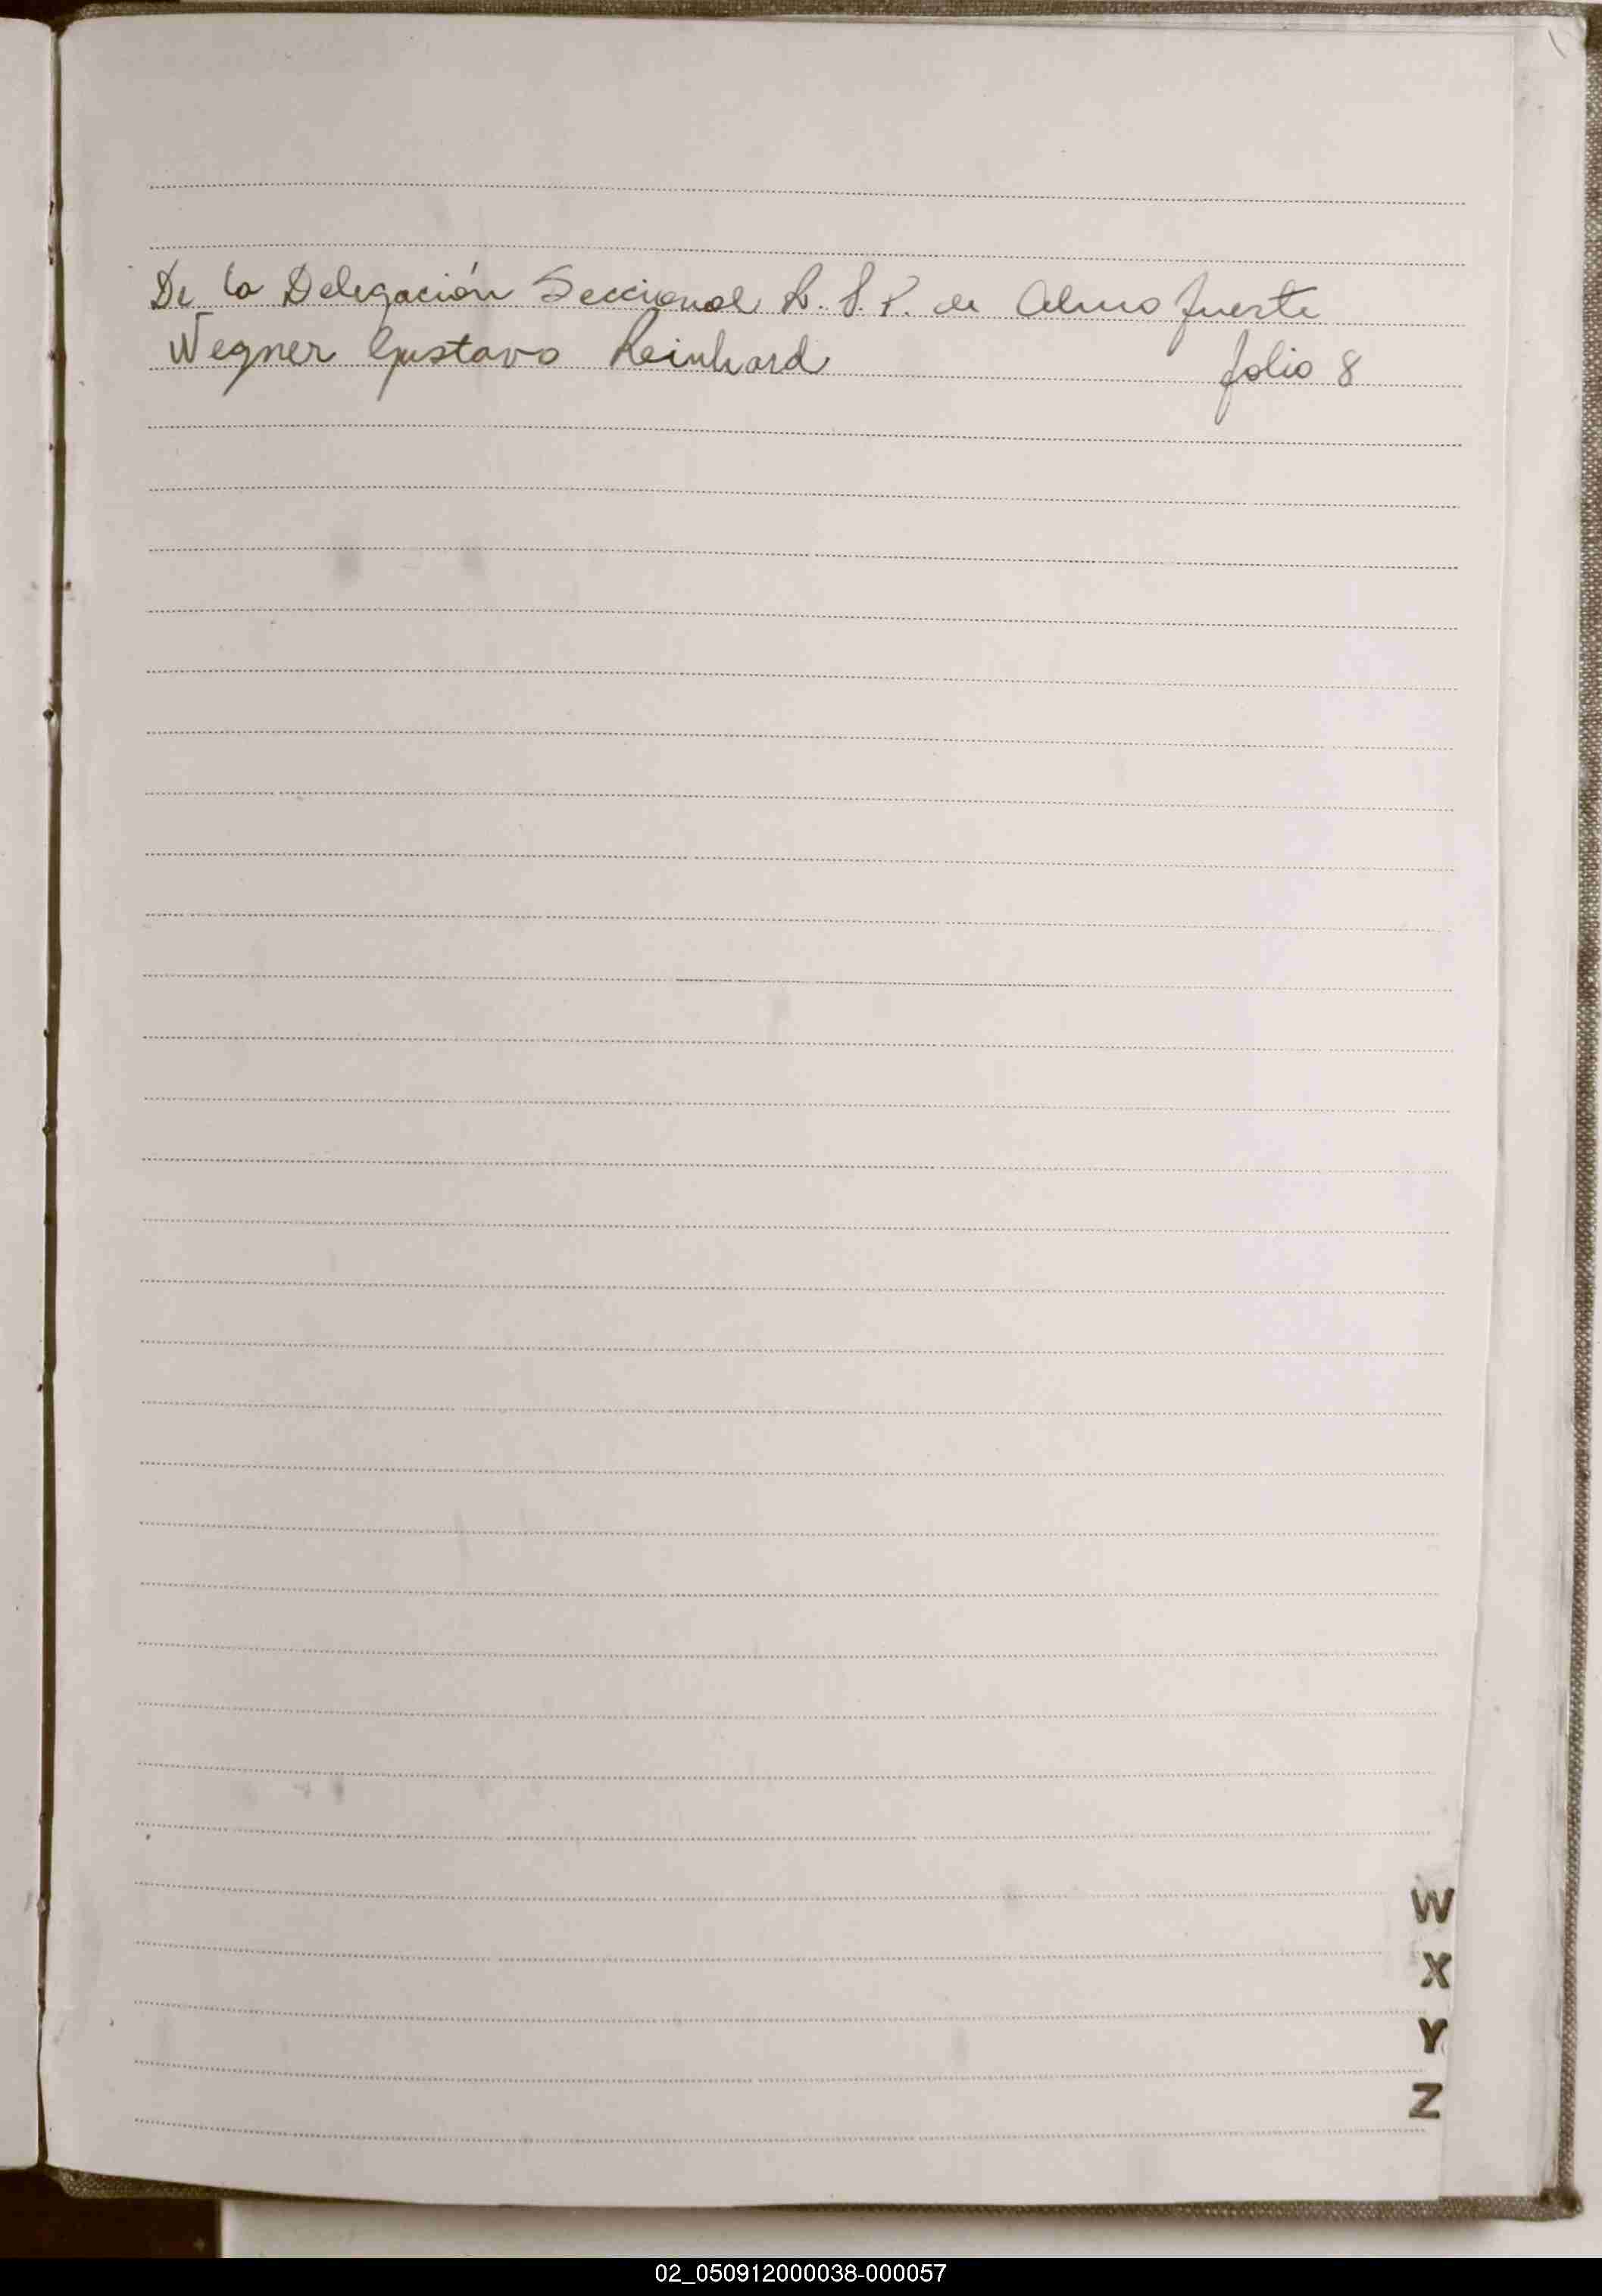 De la Delegación Seccional R. S. P. de Almo fuerte
Wegner Gustavo Reinhard folio 8
W
X
Y
Z
02_050912000038-000057